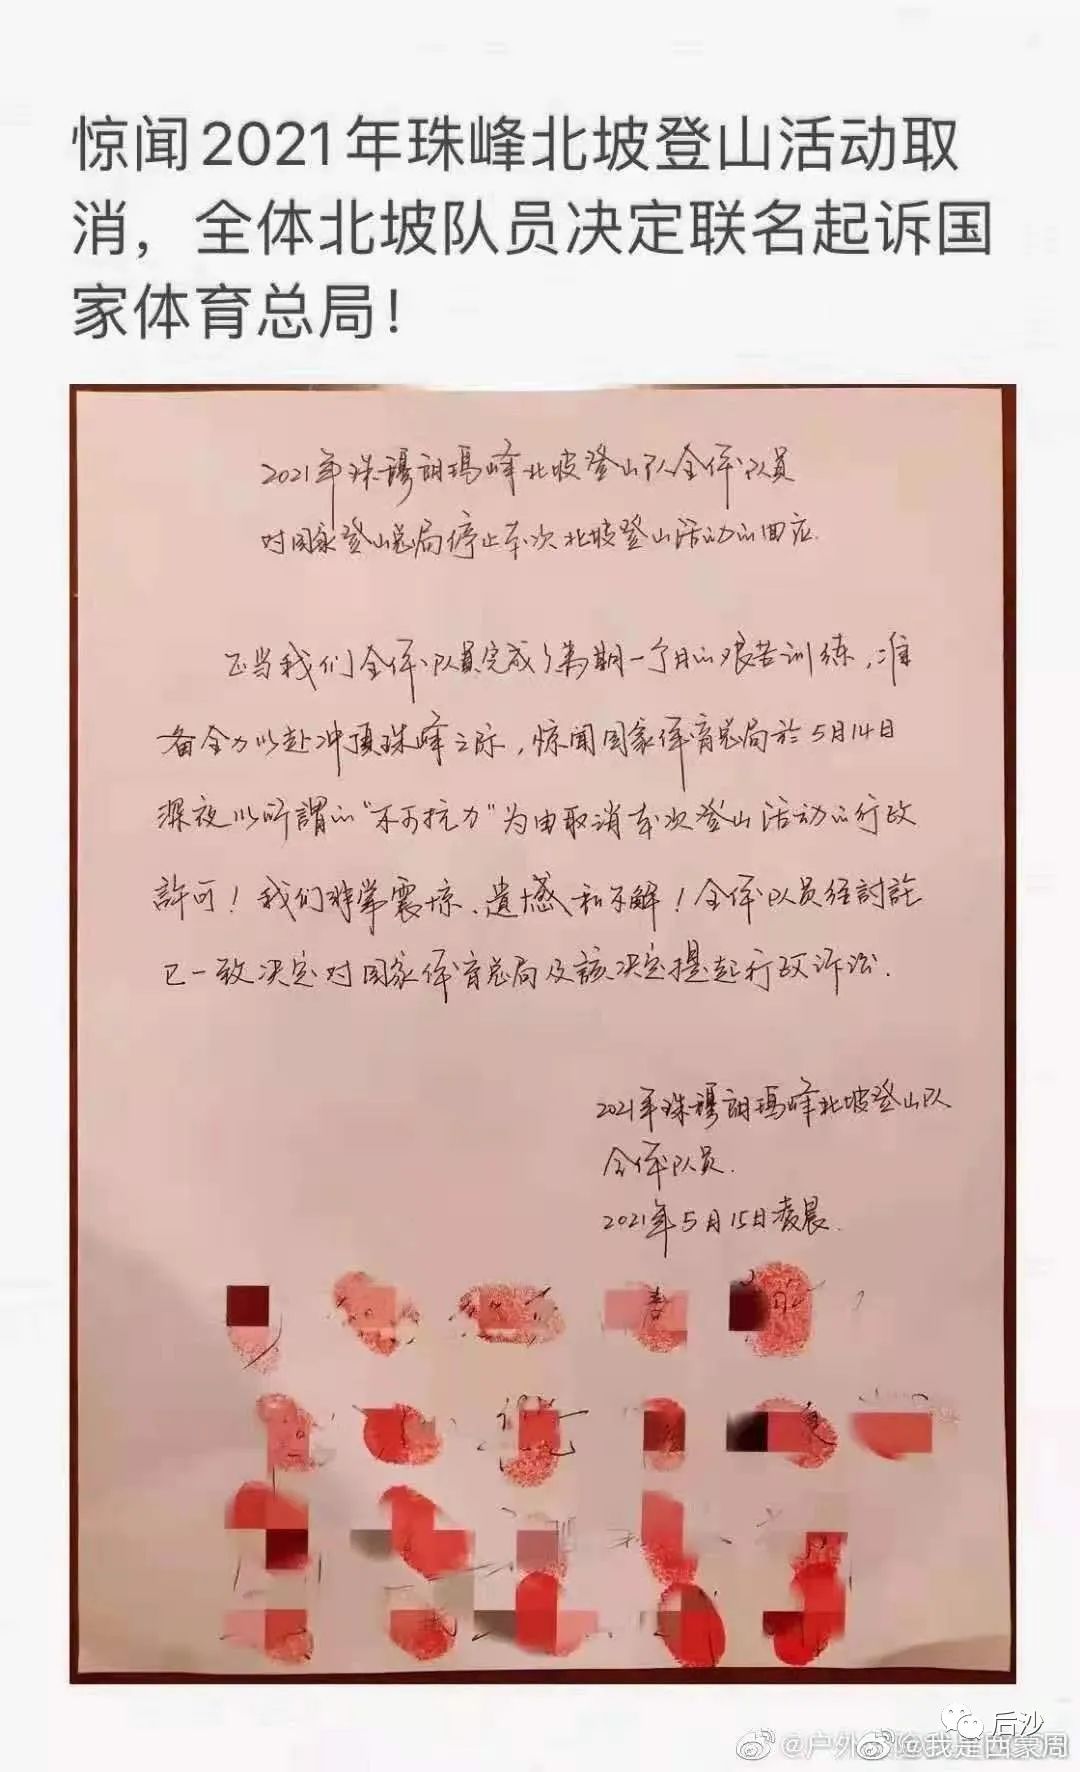 惊闻2021年珠峰北坡登山活动取
消，全体北坡队员决定联名起诉国
家体育总局！
2021年珠穆朗瑪峰北坡登山队全体队员
对国家登山总局停止本次北坡登山活动的回应.
正当我们全体队员完成了为期一个月的艰苦训练,准
备全力以赴冲顶珠峰之际,惊闻国家体育总局於5月14日
深夜以所謂的"不可抗力"为由取消本次登山活动的行政
許可!我们非常震惊、遗憾和不解!全体队员经討論
已一致决定对国家体育总局及該决定提起行政诉讼.
2021年珠穆朗瑪峰北坡登山队
全体队员.
2021年5月15日凌晨.
后沙
@户外 险@我是西蒙周